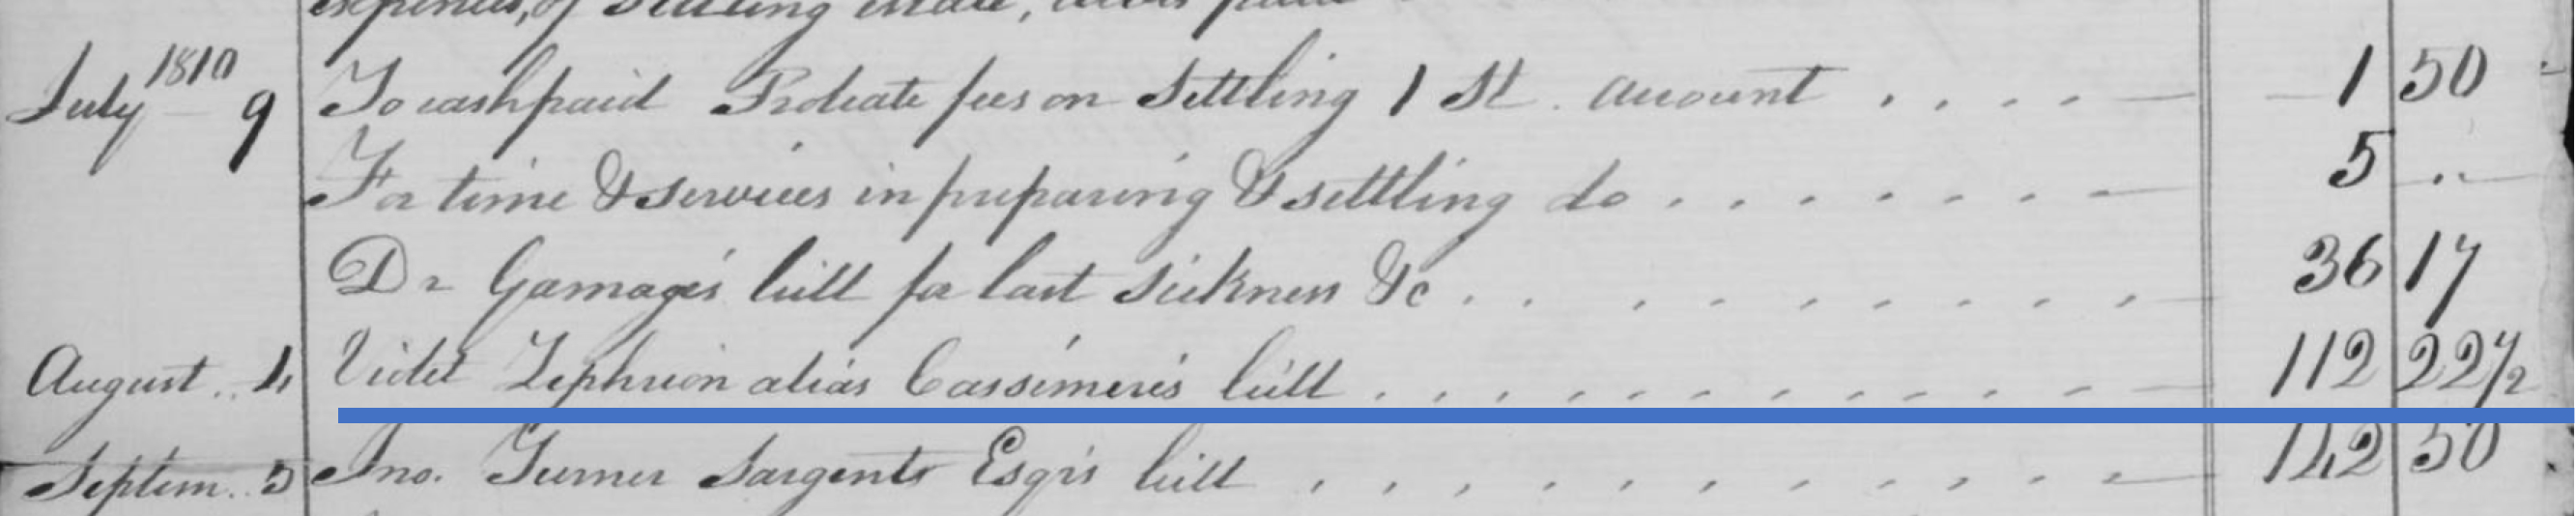 expenses, of settling estate, debts paid
July 1810 9 To cash paid Probate fees on settling 1 St. account . . . . 1 50
For time & services in preparing & settling do . . . . . . . 5 ..
Dr Gamage's bill for last sickness &c . . . . . . . . . 36 17
August .. 4 Violet Zephrion alias Cassimere's bill . . . . . . . . . . . 112 22 1/2
Septem.. 5 Jno. Turner Sargents Esqrs bill . . . . . . . . . . 142 50